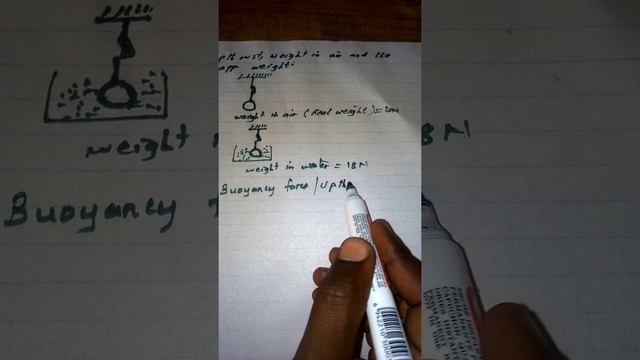 weight in air and the
app weight.
weight in air (Real weight) = 20N
weight in water = 18N
Buoyancy force / Upth